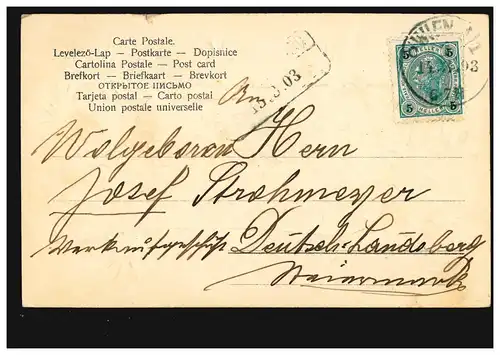 Carte Postale.
Levelező-Lap — Postkarte — Dopisnice
Cartolina Postale — Post card
Brefkort — Briefkaart — Brevkort
ОТКРЫТОЕ ПИСЬМО
Tarjeta postal — Carto postal
Union postale universelle
15.3.03
WIEN
03
5 5
5 5
HELLER
An
Wolgeboren Hern
Josef Strohmeyer
Deutsch-Landsberg
Steiermark